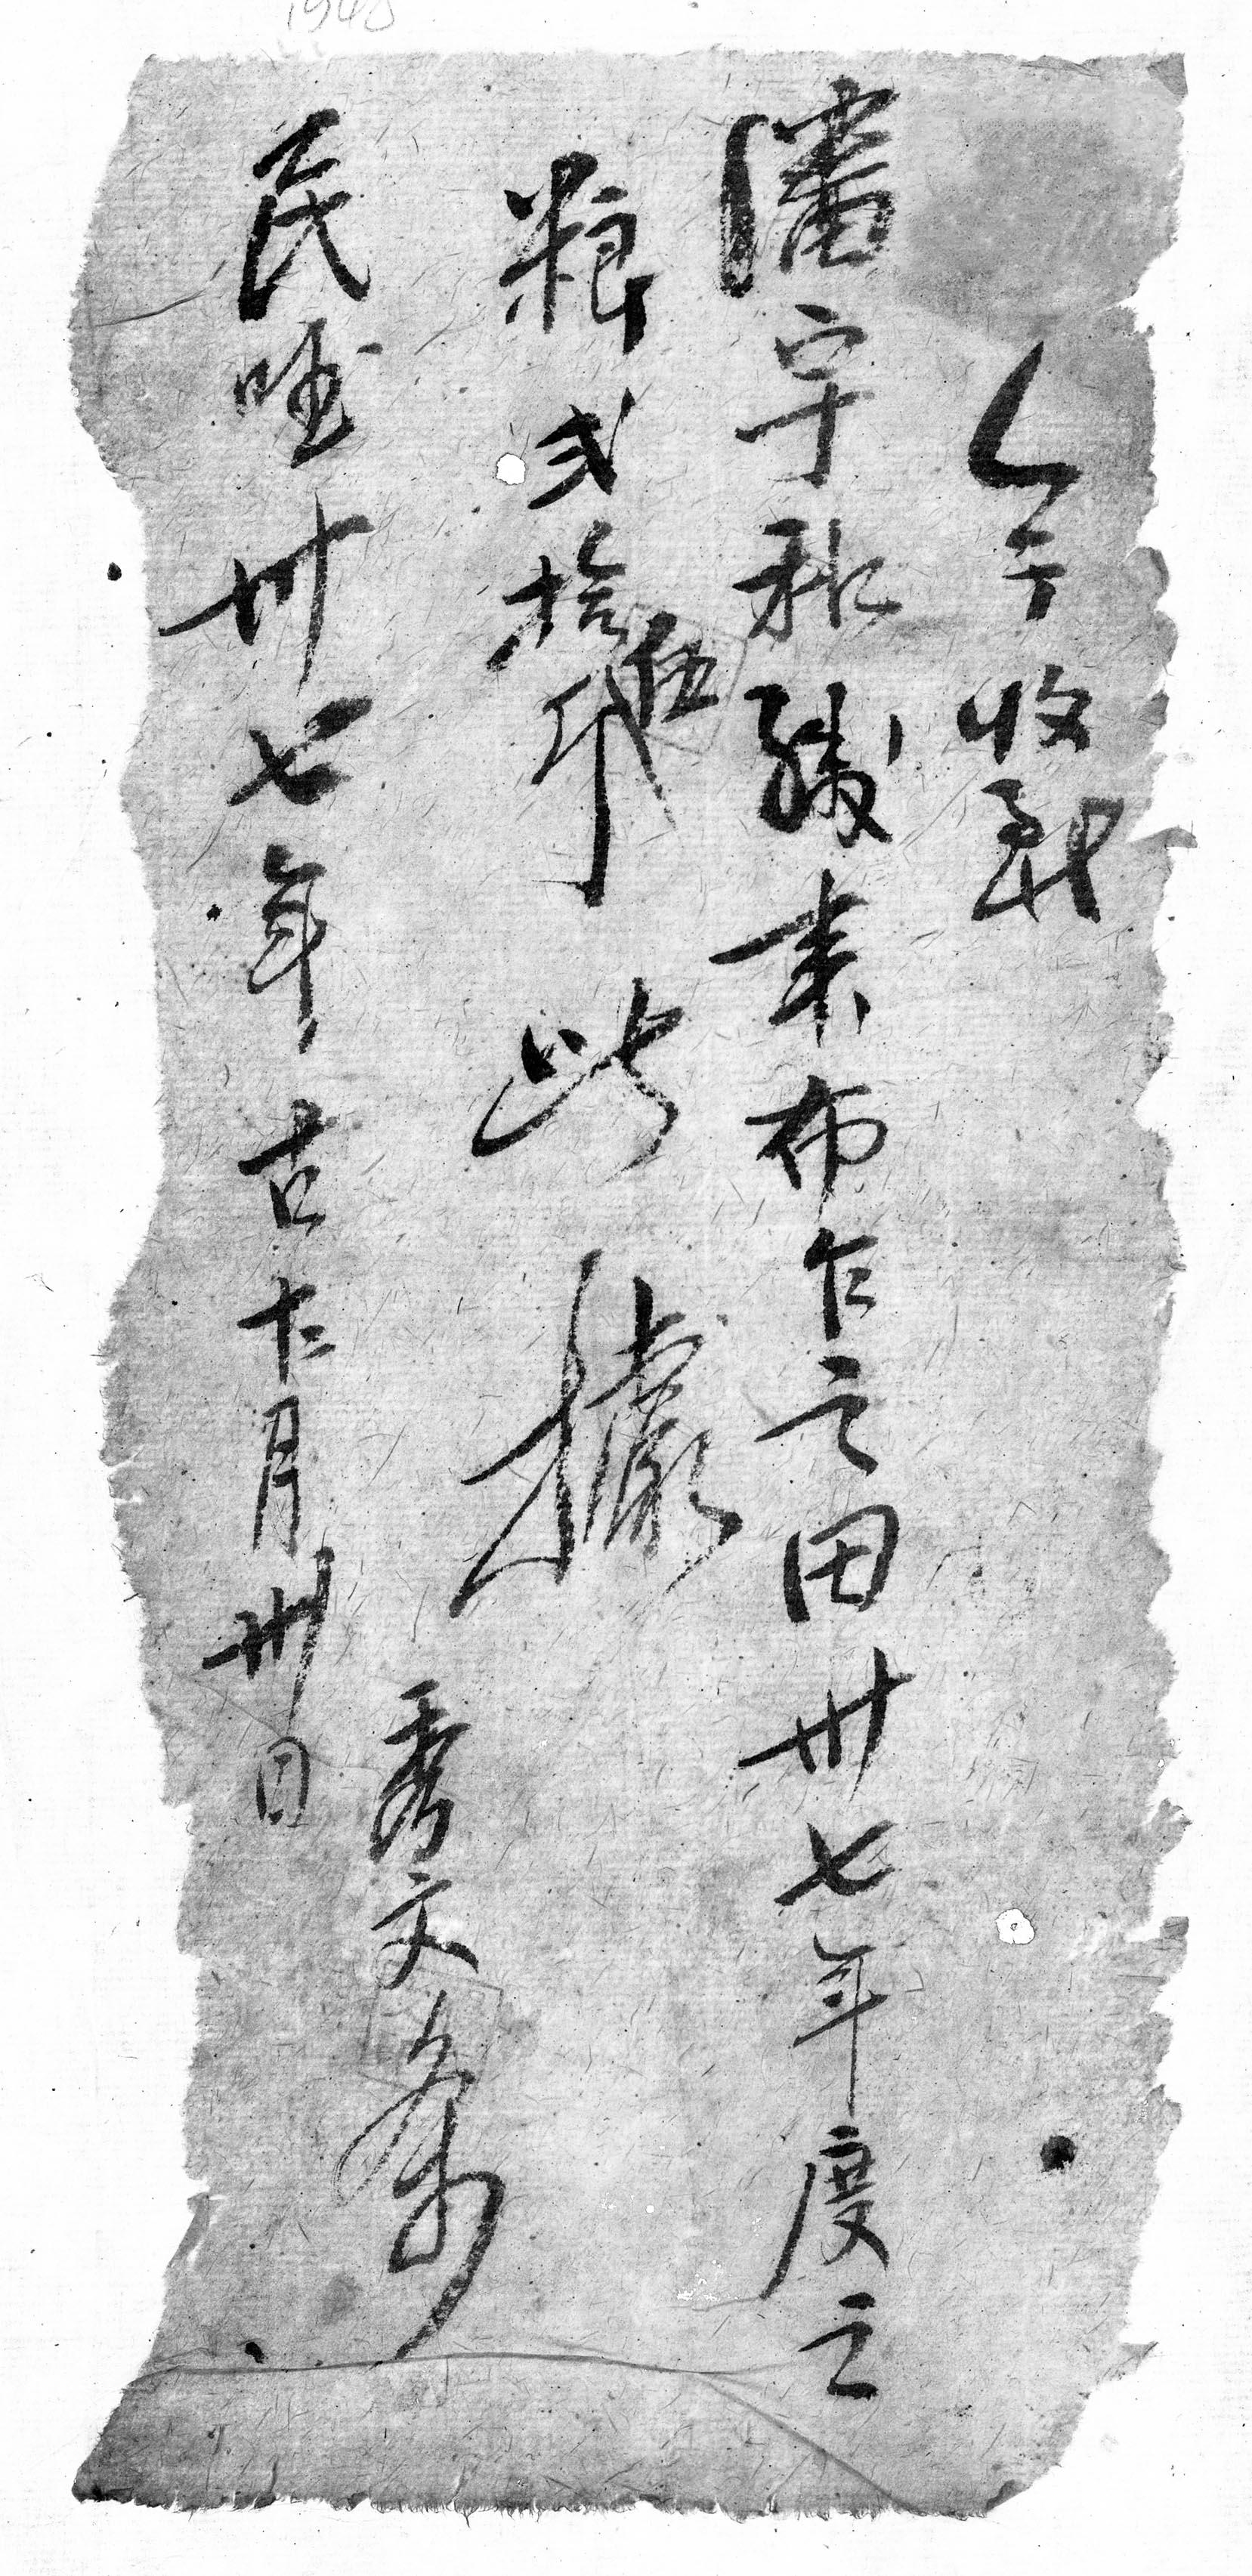 今收到
潘字
布乍之田卅七年度之
粮弍拾伍斤 此據
秀文
民國卅七年古十二月卅日
1948